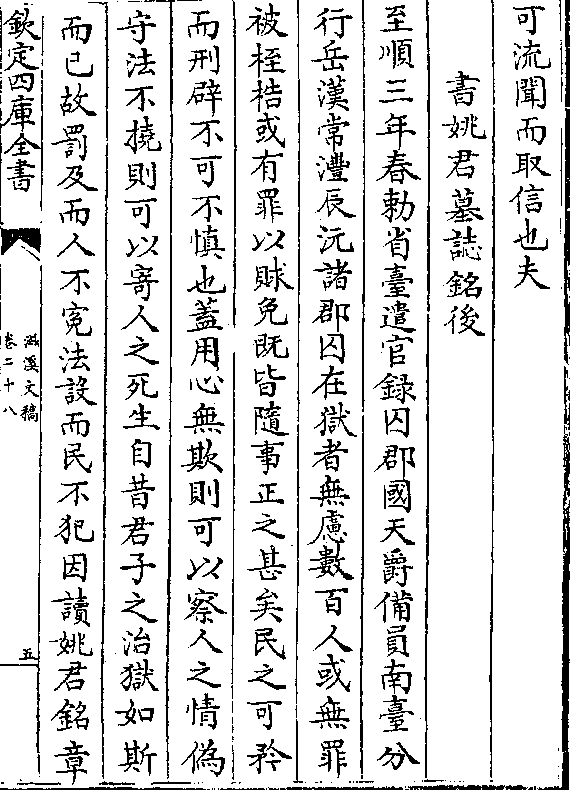 可流聞而取信也夫
書姚君墓誌銘後
至順三年春勅省臺遣官録囚郡國天爵備員南臺分
行岳漢常澧辰沅諸郡囚在獄者無慮數百人或無罪
被桎梏或有罪以賕免既皆隨事正之甚矣民之可矜
而刑辟不可不慎也蓋用心無欺則可以察人之情偽
守法不撓則可以寄人之死生自昔君子之治獄如斯
而已故罰及而人不寃法設而民不犯因讀姚君銘章
欽定四庫全書
滋溪文稿
卷二十八
五